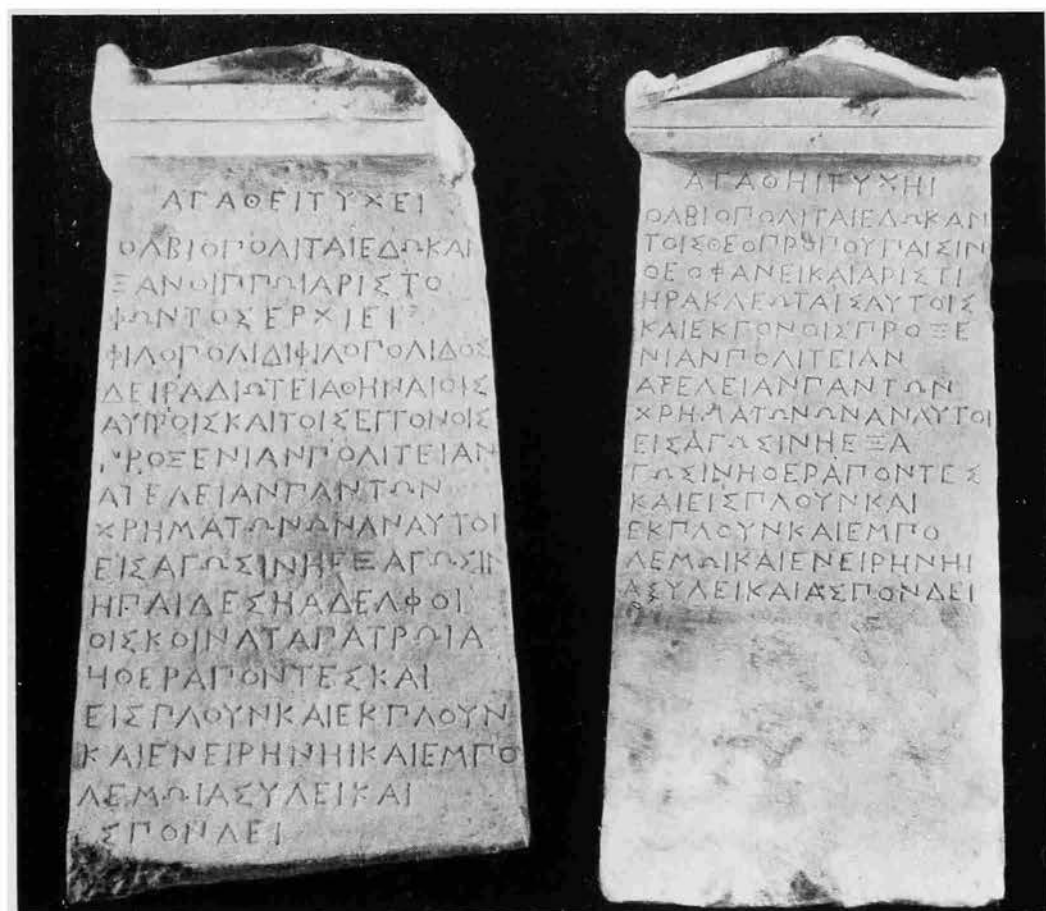 ΑΓΑΘΕΙΤΥΧΕΙ
ΟΛΒΙΟΠΟΛΙΤΑΙΕΔΩΚΑΙ
ΞΑΝΘΙΠΠΩΙΑΡΙΣΤΟ
ΦΩΝΤΟΣΕΡΧΙΕΙ
ΦΙΛΟΠΟΛΙΔΙΦΙΛΟΠΟΛΙΔΟΣ
ΔΕΙΡΑΔΙΩΤΕΙΑΘΗΝΑΙΟΙΣ
ΑΥΤΟΙΣΚΑΙΤΟΙΣΕΓΓΟΝΟΙΣ
ΠΡΟΞΕΝΙΑΝΠΟΛΙΤΕΙΑΝ
ΑΤΕΛΕΙΑΝΠΑΝΤΩΝ
ΧΡΗΜΑΤΩΝΩΝΑΝΑΥΤΟΙ
ΕΙΣΑΓΩΣΙΝΗΕΞΑΓΩΣΙΝ
ΗΠΑΙΔΕΣΗΑΔΕΛΦΟΙ
ΟΙΣΚΟΙΝΑΤΑΠΑΤΡΩΙΑ
ΗΘΕΡΑΠΟΝΤΕΣΚΑΙ
ΕΙΣΠΛΟΥΝΚΑΙΕΚΠΛΟΥΝ
ΚΑΙΕΝΕΙΡΗΝΗΙΚΑΙΕΜΠΟ
ΛΕΜΩΙΑΣΥΛΕΙΚΑΙ
ΣΠΟΝΔΕΙ
ΑΓΑΘΗΙΤΥΧΗΙ
ΟΛΒΙΟΠΟΛΙΤΑΙΕΔΩΚΑΝ
ΤΟΙΣΘΕΟΠΡΟΠΟΥΠΑΙΣΙΝ
ΘΕΟΦΑΝΕΙΚΑΙΑΡΙΣΤΙ
ΗΡΑΚΛΕΩΤΑΙΣΑΥΤΟΙΣ
ΚΑΙΕΚΓΟΝΟΙΣΠΡΟΞΕ
ΝΙΑΝΠΟΛΙΤΕΙΑΝ
ΑΤΕΛΕΙΑΝΠΑΝΤΩΝ
ΧΡΗΜΑΤΩΝΩΝΑΝΑΥΤΟΙ
ΕΙΣΑΓΩΣΙΝΗΕΞΑ
ΓΩΣΙΝΗΘΕΡΑΠΟΝΤΕΣ
ΚΑΙΕΙΣΠΛΟΥΝΚΑΙ
ΕΚΠΛΟΥΝΚΑΙΕΜΠΟ
ΛΕΜΩΙΚΑΙΕΝΕΙΡΗΝΗΙ
ΑΣΥΛΕΙΚΑΙΑΣΠΟΝΔΕΙ